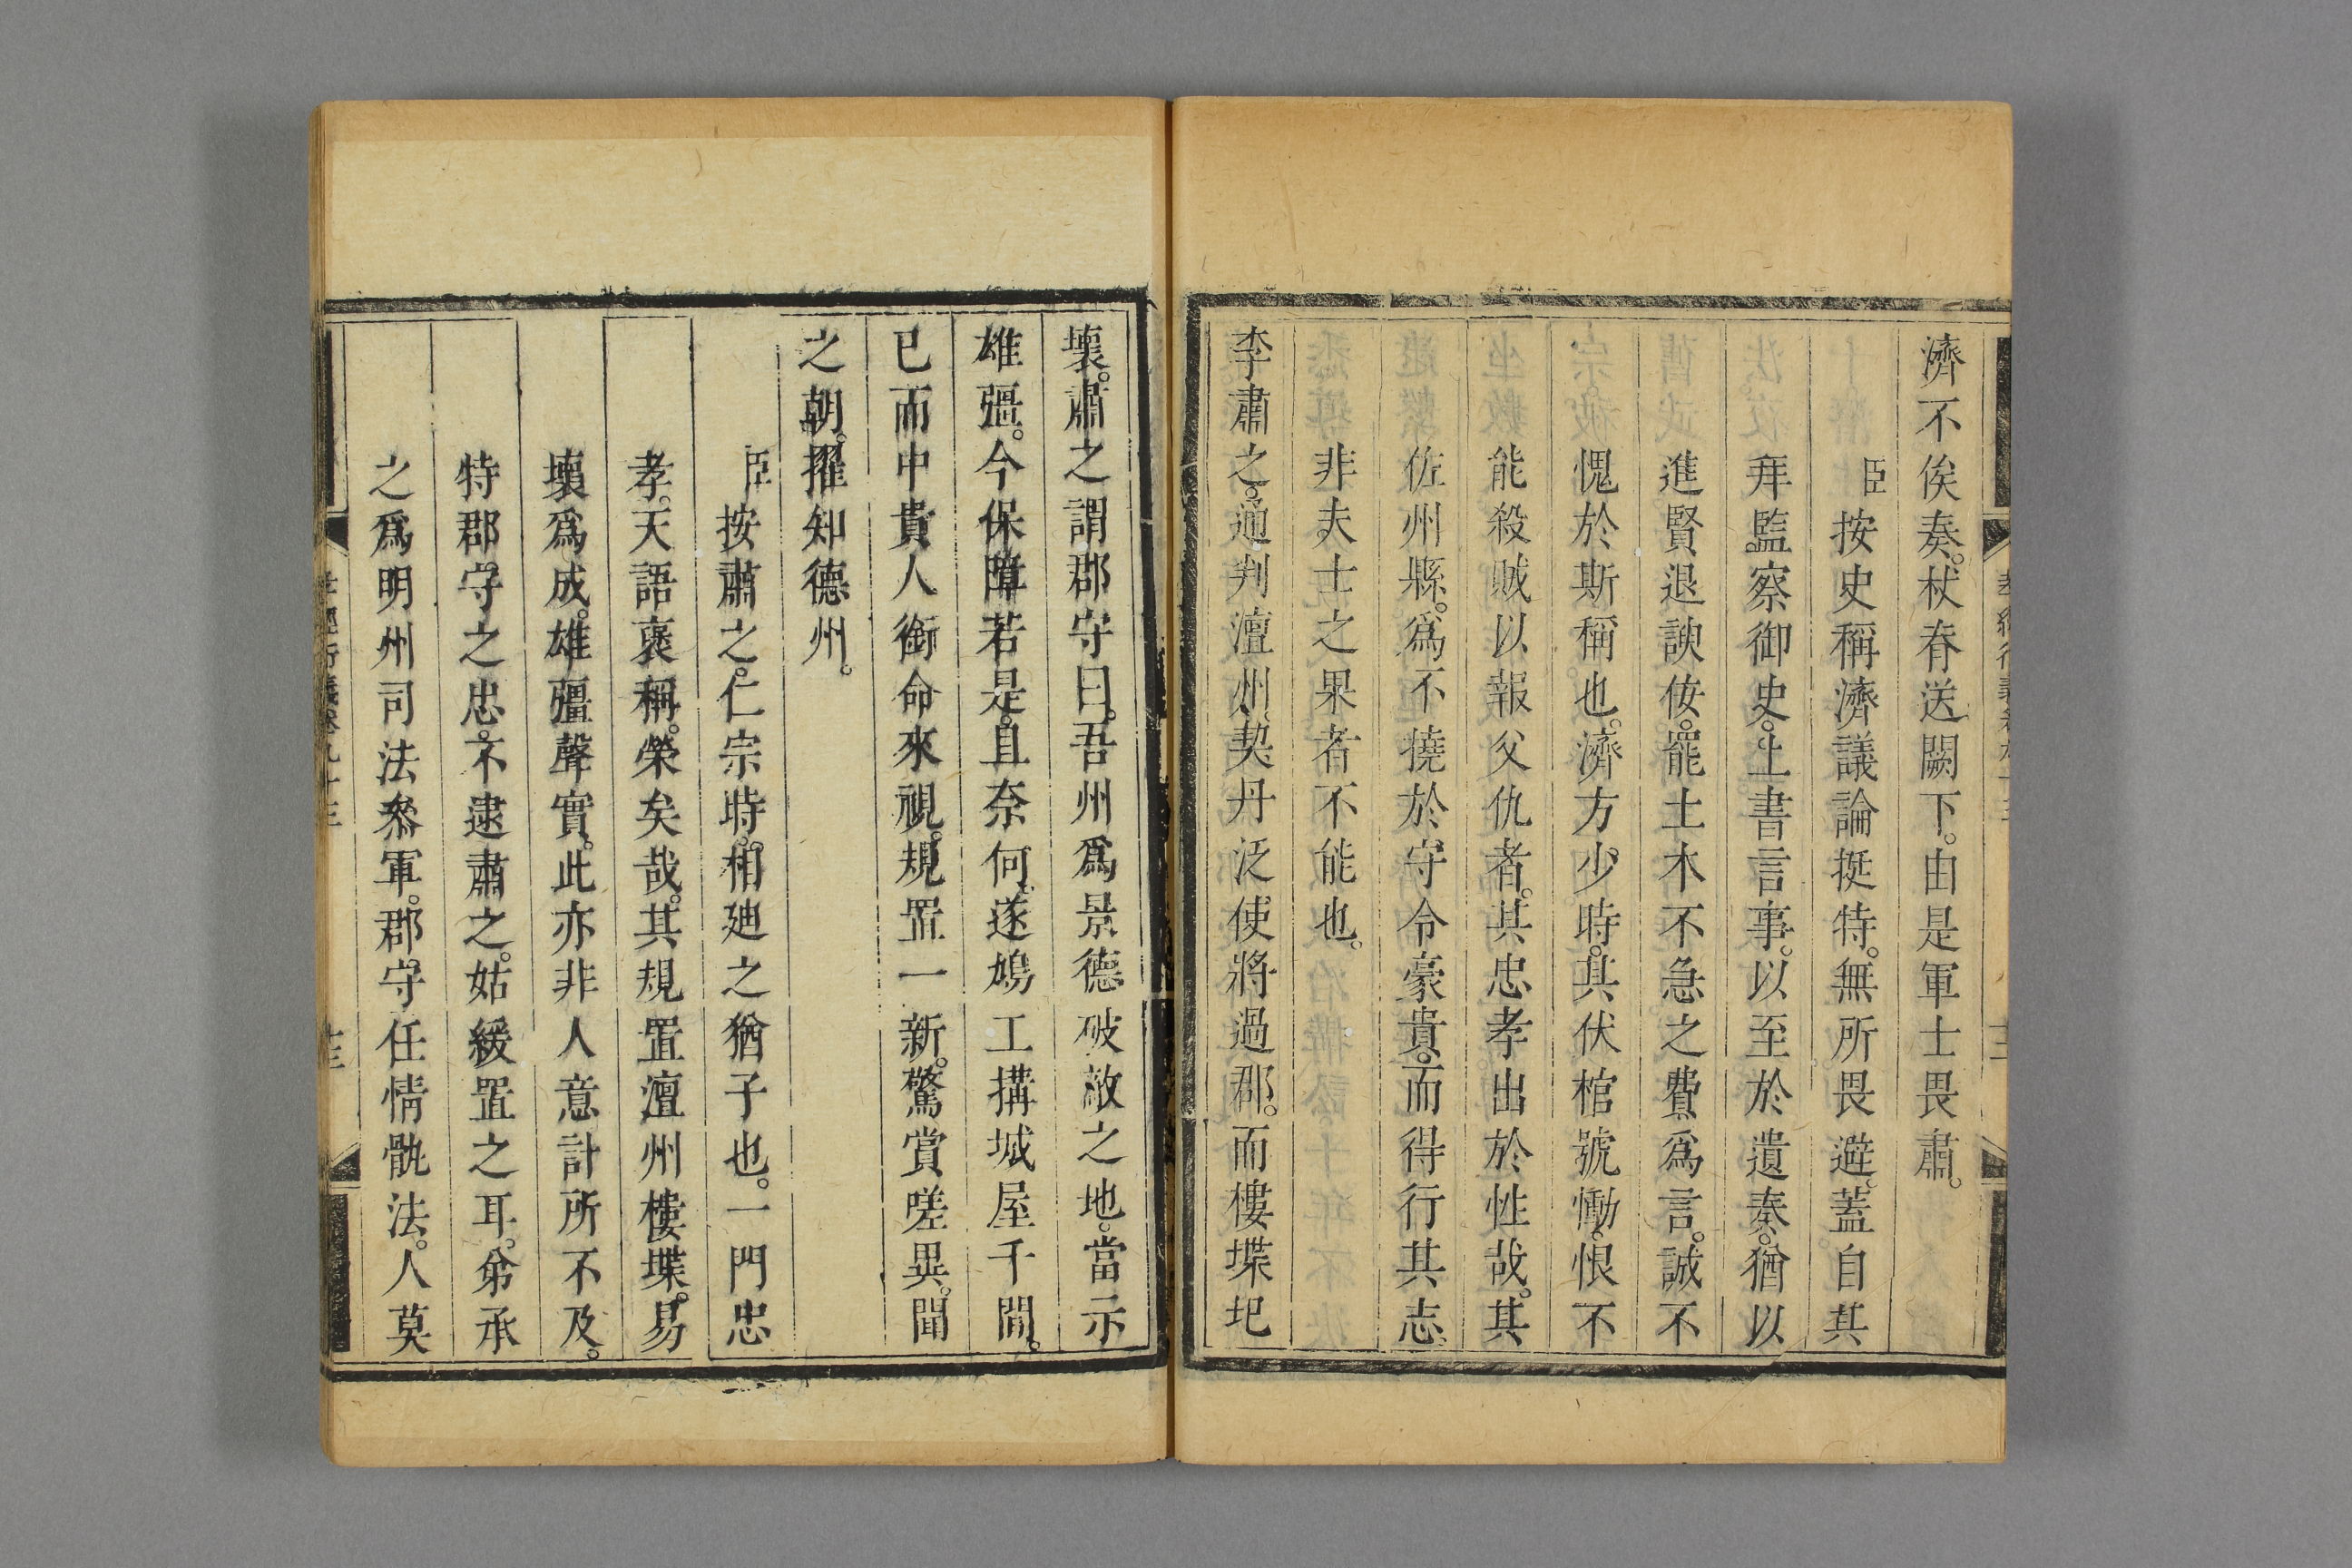 濟不俟奏。杖脊送闕下。由是軍士畏肅。
臣按史稱濟議論挺特。無所畏避。蓋自其
拜監察御史。上書言事。以至於遺奏。猶以
進賢退諛佞。罷土木不急之費。爲言。誠不
愧於斯稱也。濟方少時。其伏棺號慟。恨不
能殺賊以報父仇者。其忠孝出於性哉。其
佐州縣。爲不撓於守令豪貴。而得行其志。
非夫士之果者不能也。
李肅之。通判澶州。契丹泛使將過郡。而樓堞圮
壞。肅之謂郡守曰。吾州爲景德破敵之地。當示
雄彊。今保障若是。且奈何。遂鳩工搆城屋千間。
已而中貴人銜命來視。規置一新。驚賞嗟異。聞
之朝。擢知德州。
臣按肅之。仁宗時。相廸之猶子也。一門忠
孝。天語褒稱。榮矣哉。其規置澶州樓堞。易
壞爲成。雄彊聲實。此亦非人意計所不及。
特郡守之忠。不逮肅之。姑緩置之耳。弟承
之爲明州司法叅軍。郡守任情骫法。人莫
孝經衍義卷九十三
十三